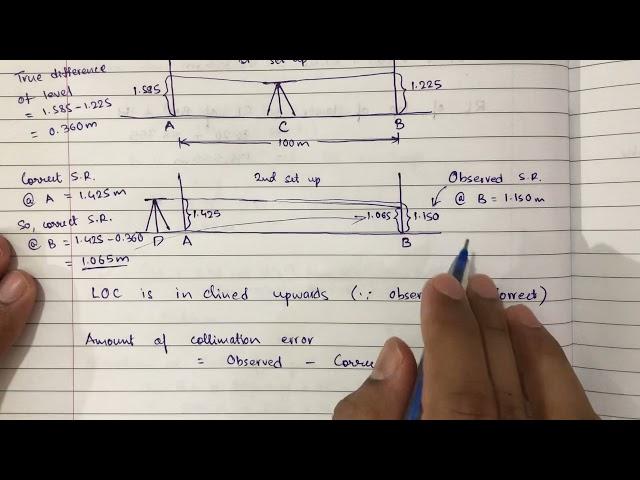 set up
True difference
of level
= 1.585 - 1.225
= 0.360 m
1.585
1.225
A
C
B
100m
Correct S.R.
@ A = 1.425 m
So, correct S.R.
@ B = 1.425 - 0.360
= 1.065m
2nd set up
1.425
1.065
1.150
D
A
B
Observed S.R.
@ B = 1.150 m
LOC is inclined upwards (∵
Amount of collimation error
= Observed -